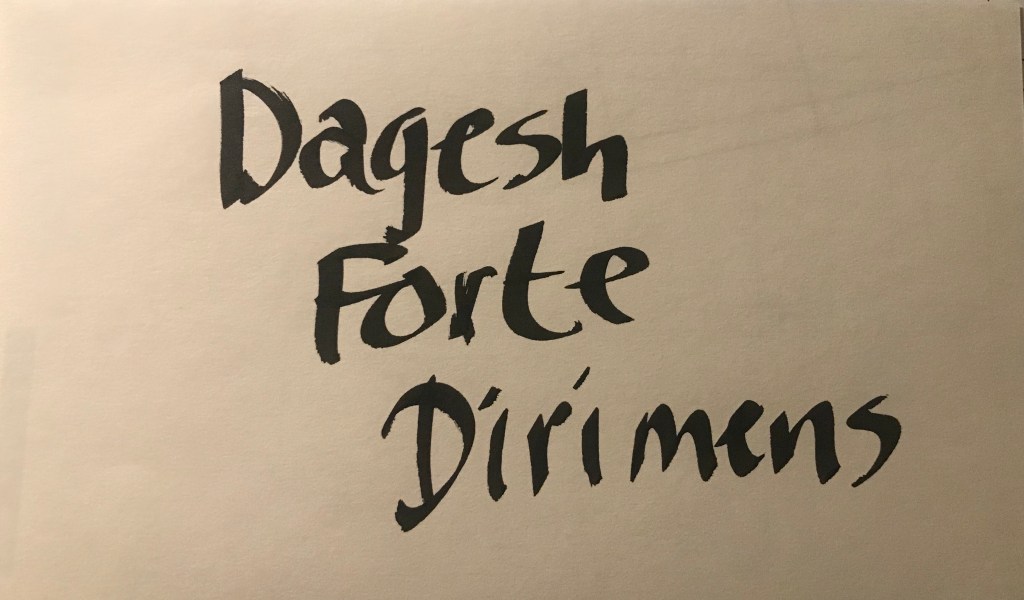 Dagesh
Forte
Dirimens